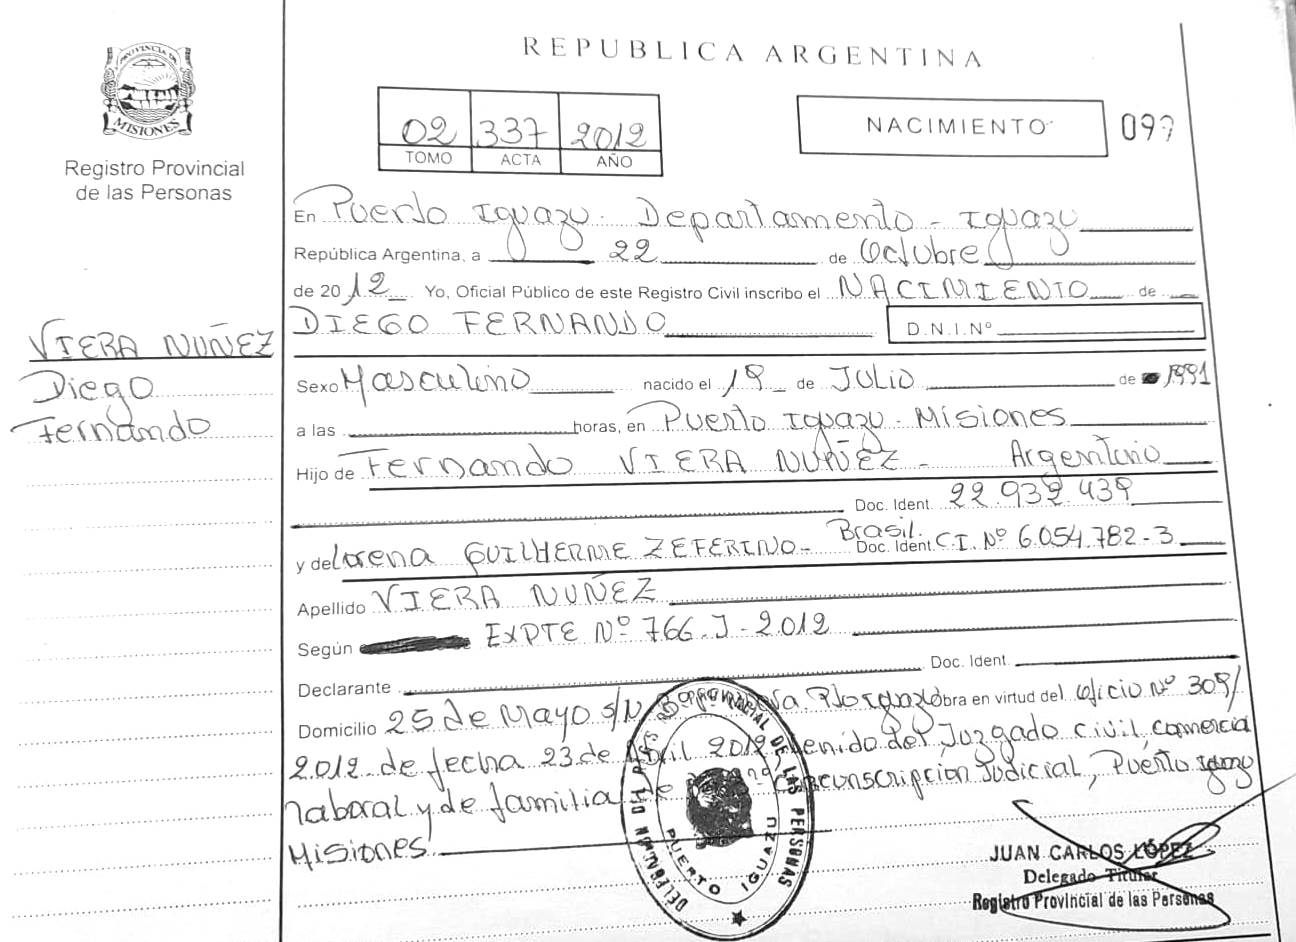 PROVINCIA DE
MISIONES
Registro Provincial
de las Personas
VIERA NUÑEZ
Diego
Fernando
REPUBLICA ARGENTINA
02 337 2012
TOMO ACTA AÑO
NACIMIENTO
En Puerto Iguazu. Departamento - Iguazu
República Argentina, a 22 de Octubre
de 2012 Yo, Oficial Público de este Registro Civil inscribo el NACIMIENTO de
DIEGO FERNANDO D.N.I.Nº
Sexo Masculino nacido el 19 de JULIO de 1991
a las horas, en Puerto Iguazu. Misiones
Hijo de Fernando VIERA NUÑEZ - Argentino
Doc. Ident. 22.932.439
y de Lorena GUILHERME ZEFERINO - Brasil. Doc. Ident. C.I. Nº 6.054.782-3
Apellido VIERA NUÑEZ
Según EXPTE Nº 766.J-2012
Declarante Doc. Ident.
Domicilio 25 de Mayo S/N obra en virtud del Oficio Nº 309/
2012 de fecha 23 de Abril 2012, venido del Juzgado Civil, Comercial
laboral y de familia de Circunscripcion Judicial, Puerto Iguazu
Misiones
PROVINCIAL DE LAS PERSONAS
PUERTO IGUAZU
JUAN CARLOS LÓPEZ
Delegado Titular
Registro Provincial de las Personas